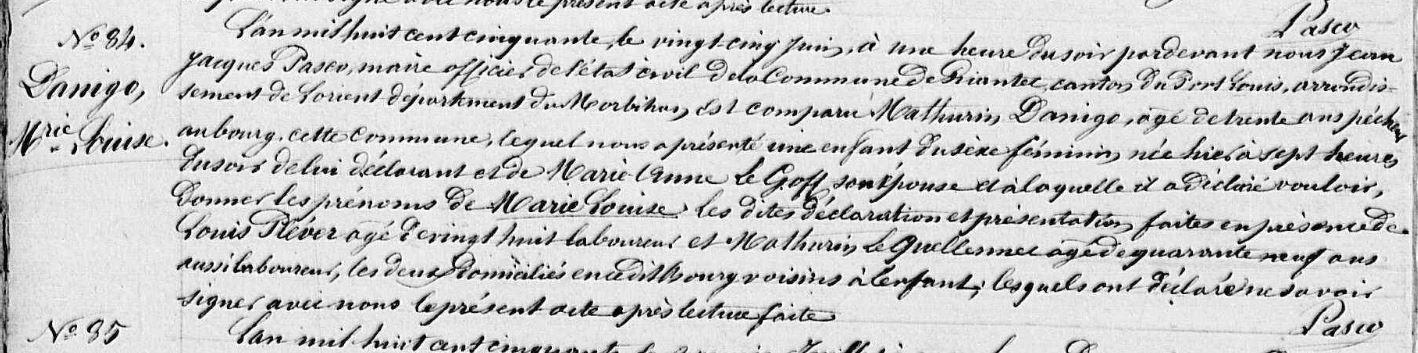 signer avec nous le présent acte après lecture
Pasco
N° 84.
Danigo,
Mrie Louise.
L'an mil huit cent cinquante, le vingt-cinq juin, à une heure du soir pardevant nous Jean
Jacques Pasco, maire officier de l'état civil de la Commune De Riantec, canton du Port Louis, arrondis-
sement de Lorient département du Morbihan, Est comparu Mathurin Danigo, âgé de trente ans pêcheur
au bourg, cette commune, lequel nous a présenté une enfant du sèxe féminin née hier à sept heures
du soir de lui déclarant et de Marie Anne Le Goff son épouse et à laquelle il a déclaré vouloir,
donner les prénoms de Marie Louise. Les dites déclaration et présentation, faites en présence de
Louis Pléver agé de vingt huit laboureur et Mathurin Le Quellennec agé de quarante neuf ans
aussi laboureur, les deux domiciliés en cedit bourg voisins à l'enfant; lesquels ont déclaré ne savoir
signer avec nous le présent acte après lecture faite
Pasco
N° 85
L'an mil huit cent cinquante